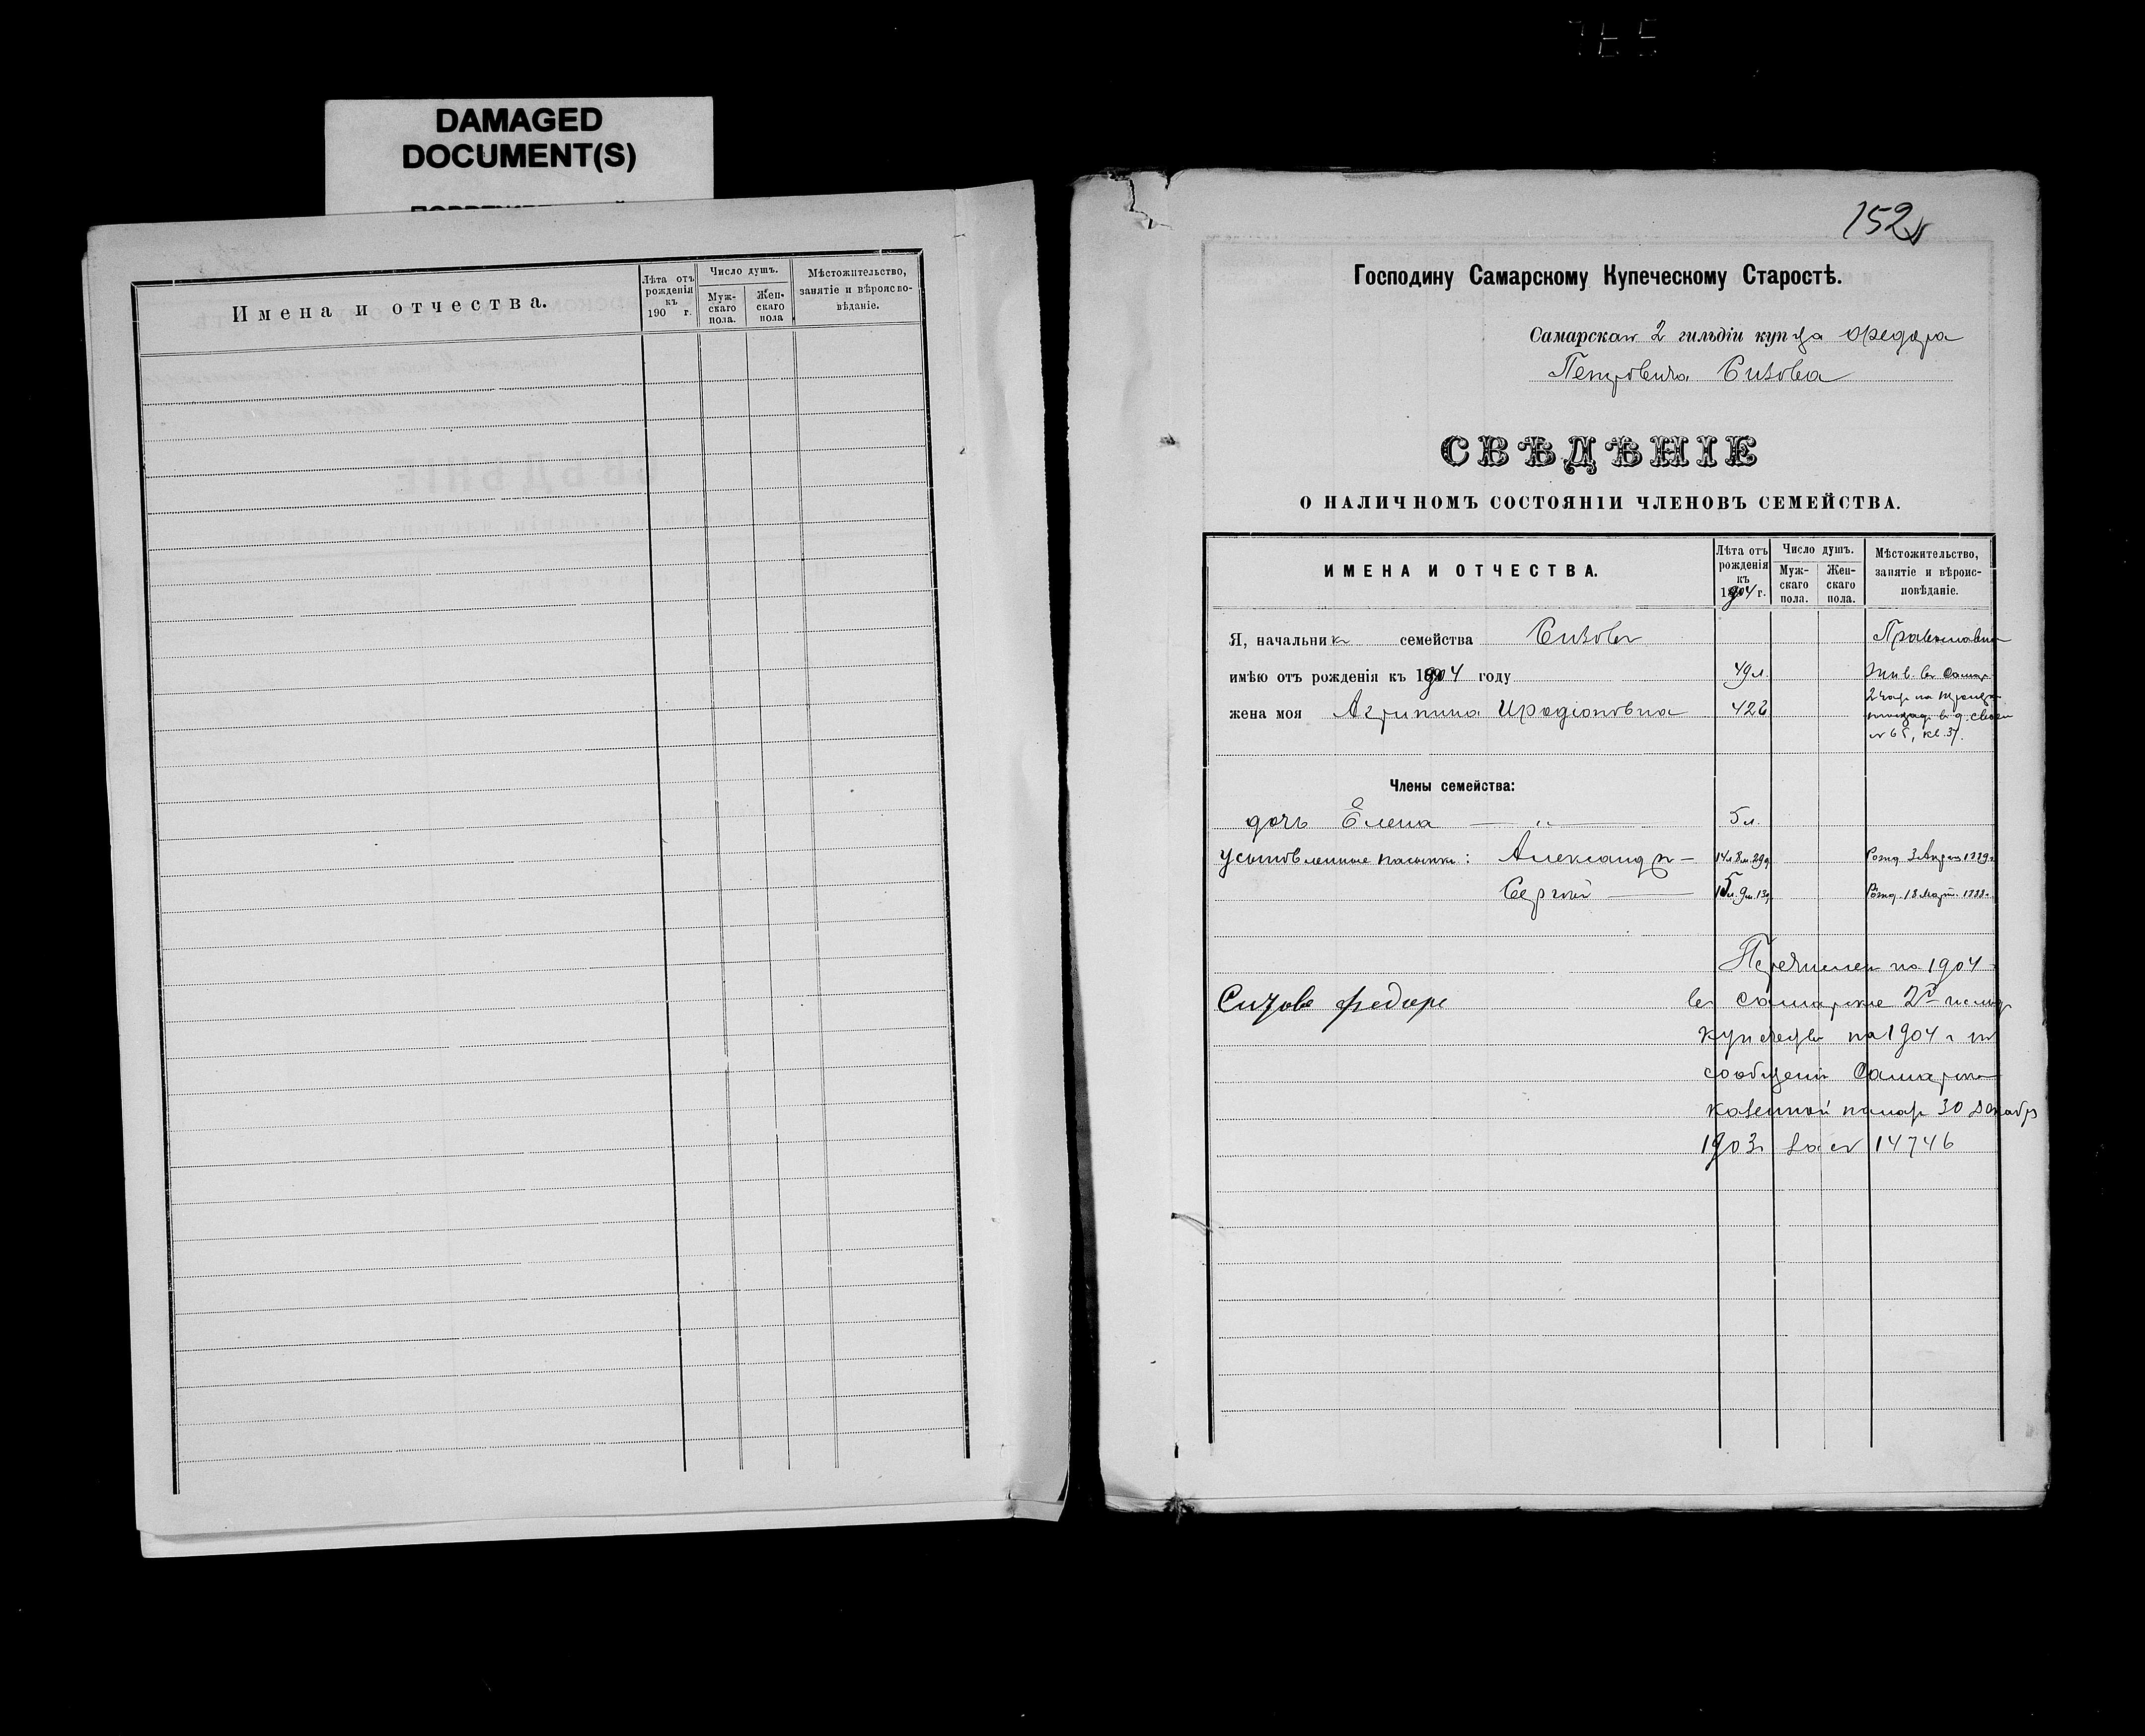 DAMAGED
DOCUMENT(S)
Имена и отчества.
Лѣта отъ рожденія къ 190 г.
Число душъ.
Муж-скаго пола.
Жен-скаго пола
Мѣстожительство, занятіе и вѣроиспо-вѣданіе.
152
Господину Самарскому Купеческому Старостѣ.
Самарскаго 2 гильдіи купца Федора
Петровича Сизова
СВѢДѢНІЕ
О НАЛИЧНОМЪ СОСТОЯНІИ ЧЛЕНОВЪ СЕМЕЙСТВА.
ИМЕНА И ОТЧЕСТВА.
Лѣта отъ рожденія къ 1904 г.
Число душъ.
Муж-скаго пола.
Жен-скаго пола.
Мѣстожительство, занятіе и вѣроис-повѣданіе.
Я, начальник семейства Сизовъ Православн
имѣю отъ рожденія къ 1904 году 49 л. Жив. въ Самар
2 час на Троицк
жена моя Агрипина Иродіоновна 42 площад. в д. своем
№ 65, кв. 37.
Члены семейства:
дочь Елена — „ — 5 л.
Усыновленные пасынки: Александръ — 14 л. 8 м. 29 д Рожд 3 Апрѣл 1889 г.
Сергѣй — 15 л. 9 м. 13 д Рожд. 18 Март. 1888 г.
Перечислен на 1904
Сизовъ Федоръ въ Самарское 2й гильд
купечество на 1904 г по
сообщенію Самарской
казенной палат 30 декабр
1903 г за № 14746